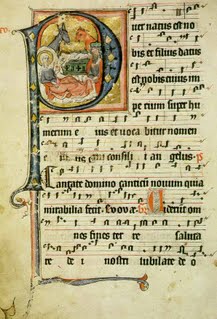 Puer natus est no
bis et filius datus
est nobis cuius im
perium super hu
merum eius et uocabitur nomen
eius magni consilii angelus. p̄s
Cantate domino canticum nouum quia
mirabilia fecit. Euouae. Uiderunt om
nes fines terre saluta
re dei nostri iubilate deo o